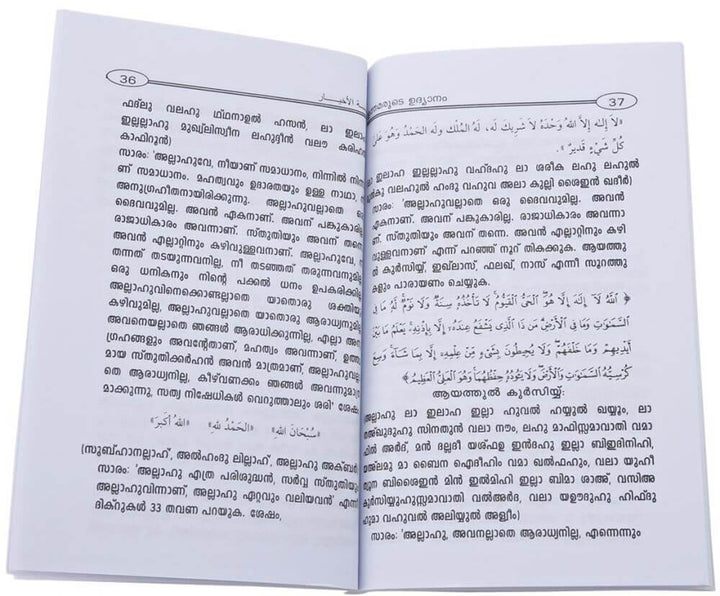 36
ـة الأخيـار
ഫദ്ലു വലഹു ഥ്ഥനാഉൽ ഹസൻ, ലാ ഇലാ
ഇല്ലല്ലാഹു മുഖ്ലിസീന ലഹുദ്ദീൻ വലൗ കരിഹ
കാഫിറൂൻ)
സാരം: 'അല്ലാഹുവേ, നീയാണ് സമാധാനം, നിന്നിൽ നിന്ന
സമാധാനം. മഹത്വവും ഉദാരതയും ഉള്ള നാഥാ, ന
അനുഗ്രഹീതനായിരിക്കുന്നു. അല്ലാഹുവല്ലാതെ ഒര
ദൈവവുമില്ല. അവൻ ഏകനാണ്. അവന് പങ്കുകാരില്ല
രാജാധികാരം അവന്നാണ്. സ്തുതിയും അവന് തന്നെ
അവൻ എല്ലാറ്റിനും കഴിവുള്ളവനാണ്. അല്ലാഹുവേ, ന
തന്നത് തടയുന്നവനില്ല, നീ തടഞ്ഞത് തരുന്നവനുമില്ല
ഒരു ധനികനും നിന്റെ പക്കൽ ധനം ഉപകരിക്കില്ല
അല്ലാഹുവിനെക്കൊണ്ടല്ലാതെ യാതൊരു ശക്തിയു
കഴിവുമില്ല, അല്ലാഹുവല്ലാതെ യാതൊരു ആരാധ്യനുമില്ല
അവനെയല്ലാതെ ഞങ്ങൾ ആരാധിക്കുന്നില്ല, എല്ലാ അന
ഗ്രഹങ്ങളും അവന്റേതാണ്, മഹത്വം അവന്നാണ്, ഉത്ത
മായ സ്തുതിക്കർഹൻ അവൻ മാത്രമാണ്, അല്ലാഹുവല്ല
തെ ആരാധ്യനില്ല, കീഴ്വണക്കം ഞങ്ങൾ അവന്നുമാത്ര
മാക്കുന്നു, സത്യ നിഷേധികൾ വെറുത്താലും ശരി' ശേഷം
«سُبْحَانَ اللهِ» «الْحَمْدُ لِلهِ» «اللهُ أَكْبَرَ»
(സുബ്ഹാനല്ലാഹ്, അൽഹംദു ലില്ലാഹ്, അല്ലാഹു അക്ബർ
സാരം: 'അല്ലാഹു എത്ര പരിശുദ്ധൻ, സർവ്വ സ്തുതിയു
അല്ലാഹുവിന്നാണ്, അല്ലാഹു ഏറ്റവും വലിയവൻ' എന്ന
ദിക്റുകൾ 33 തവണ പറയുക. ശേഷം,
ന്മാരുടെ ഉദ്യാനം
37
«لاَ إِلَهَ إِلاَّ اللهُ وَحْدَهُ لاَ شَرِيكَ لَهُ، لَهُ الْمُلْكُ وَلَهُ الْحَمْدُ وَهُوَ عَلَى
كُلِّ شَيْءٍ قَدِيرٌ»
ഇലാഹ ഇല്ലല്ലാഹു വഹ്ദഹു ലാ ശരീക ലഹു ലഹുൽ
ൽകു വലഹുൽ ഹംദു വഹുവ അലാ കുല്ലി ശൈഇൻ ഖദീർ)
സാരം: 'അല്ലാഹുവല്ലാതെ ഒരു ദൈവവുമില്ല. അവൻ
ഏകനാണ്. അവന് പങ്കുകാരില്ല. രാജാധികാരം അവന്നാ
. സ്തുതിയും അവന് തന്നെ. അവൻ എല്ലാറ്റിനും കഴി
വുള്ളവനാണ് എന്ന് പറഞ്ഞ് നൂറ് തികക്കുക. ആയത്തു
കുർസിയ്യ്, ഇഖ്ലാസ്, ഫലഖ്, നാസ് എന്നീ സൂറത്തു
കളും പാരായണം ചെയ്യുക.
﴿ اللهُ لَا إِلَهَ إِلَّا هُوَ الْحَيُّ الْقَيُّومُ لَا تَأْخُذُهُ سِنَةٌ وَلَا نَوْمٌ لَهُ مَا فِي
السَّمَاوَاتِ وَمَا فِي الْأَرْضِ مَنْ ذَا الَّذِي يَشْفَعُ عِنْدَهُ إِلَّا بِإِذْنِهِ يَعْلَمُ مَا بَيْنَ
أَيْدِيهِمْ وَمَا خَلْفَهُمْ وَلَا يُحِيطُونَ بِشَيْءٍ مِنْ عِلْمِهِ إِلَّا بِمَا شَاءَ وَسِعَ
كُرْسِيُّهُ السَّمَاوَاتِ وَالْأَرْضَ وَلَا يَئُودُهُ حِفْظُهُمَا وَهُوَ الْعَلِيُّ الْعَظِيمُ ﴾
ആയത്തുൽ കുർസിയ്യ്:
അല്ലാഹു ലാ ഇലാഹ ഇല്ലാ ഹുവൽ ഹയ്യുൽ ഖയ്യൂം, ലാ
അ്ഖുദുഹു സിനതുൻ വലാ നൗം, ലഹു മാഫിസ്സമാവാതി വമാ
ഫിൽ അർദ്, മൻ ദല്ലദീ യശ്ഫഉ ഇൻദഹു ഇല്ലാ ബിഇദിനിഹി,
അ്ലമു മാ ബൈന ഐദീഹിം വമാ ഖൽഫഹും, വലാ യുഹീ
ന ബിശൈഇൻ മിൻ ഇൽമിഹി ഇല്ലാ ബിമാ ശാഅ്, വസിഅ
കുർസിയ്യുഹുസ്സമാവാതി വൽഅർദ, വലാ യഊദുഹു ഹിഫ്ദു
ഹുമാ വഹുവൽ അലിയ്യുൽ അള്വീം)
സാരം: 'അല്ലാഹു, അവനല്ലാതെ ആരാധ്യനില്ല, എന്നെന്നും